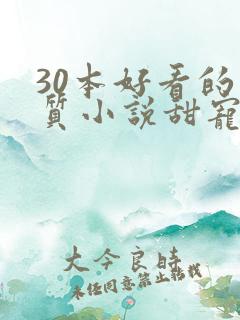 30本好看的
质小说甜宠
大今良时
未经同意禁止转载